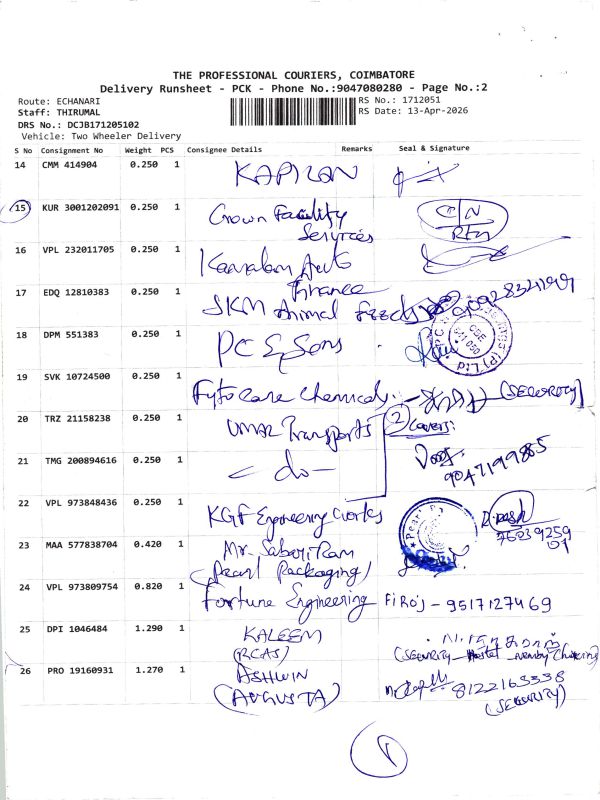 THE PROFESSIONAL COURIERS, COIMBATORE
Delivery Runsheet - PCK - Phone No.:9047080280 - Page No.:2
Route: ECHANARI
RS No.: 1712051
Staff: THIRUMAL
RS Date: 13-Apr-2026
DRS No.: DCJB171205102
Vehicle: Two Wheeler Delivery
S No Consignment No Weight PCS Consignee Details Remarks Seal & Signature
14 CMM 414904 0.250 1 KAPILAN
15 KUR 3001202091 0.250 1 Crown Facility
Services
16 VPL 232011705 0.250 1 Kamalam Auto
Finance
17 EDQ 12810383 0.250 1 SKM Animal Feeds
18 DPM 551383 0.250 1 PC & Sons
CBE
641 050
(P) Ltd
19 SVK 10724500 0.250 1 Fyto Care Chemicals (SECURITY)
20 TRZ 21158238 0.250 1 UMAR Transports 2 Covers
21 TMG 200894616 0.250 1 - do -
9047199885
22 VPL 973848436 0.250 1 KGF Engineering Works Dinesh
23 MAA 577838704 0.420 1 Mr. Sabari Ram
(Pearl Packaging)
24 VPL 973809754 0.820 1 Fortune Engineering Firoj - 9517127469
25 DPI 1046484 1.290 1 KALEEM
(RCAS)
(SECURITY - Hostel - nearby
26 PRO 19160931 1.270 1 ASHWIN
(AUGUSTA)
8122163338
(SECURITY)